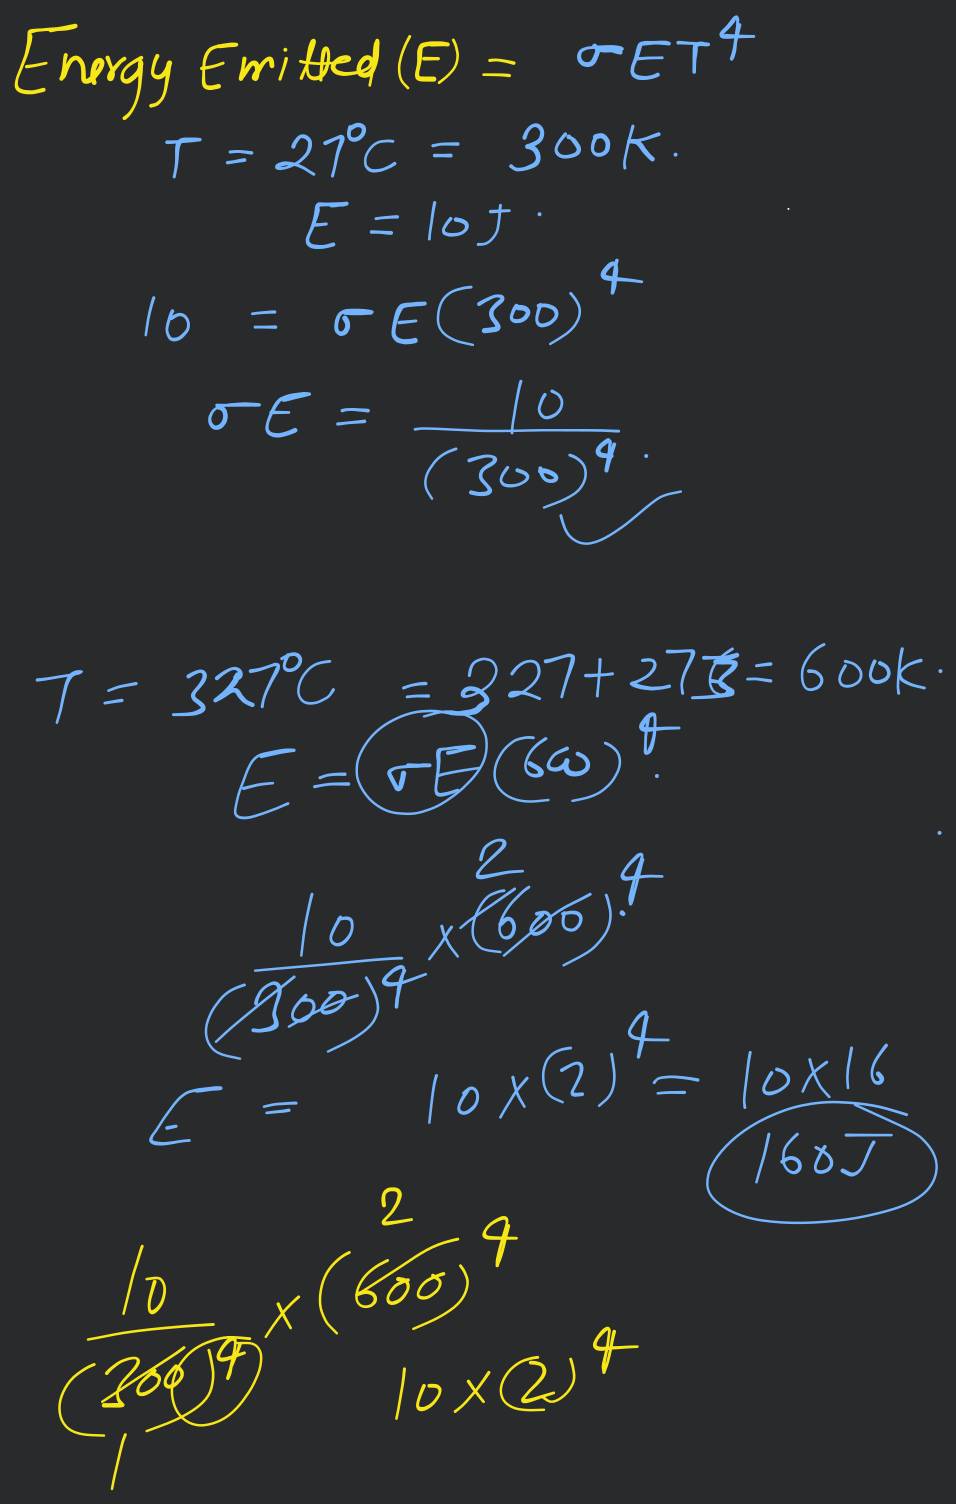 Energy Emitted (E) = σET⁴
T = 27°C = 300K.
E = 10J.
10 = σE(300)⁴
σE = 10/(300)⁴.
T = 327°C = 327+273 = 600K.
E = σE(600)⁴.
10/(300)⁴ × (600)⁴. 2
E = 10×(2)⁴ = 10×16
160J
10/(300)⁴ × (600)⁴ 2
1
10×(2)⁴